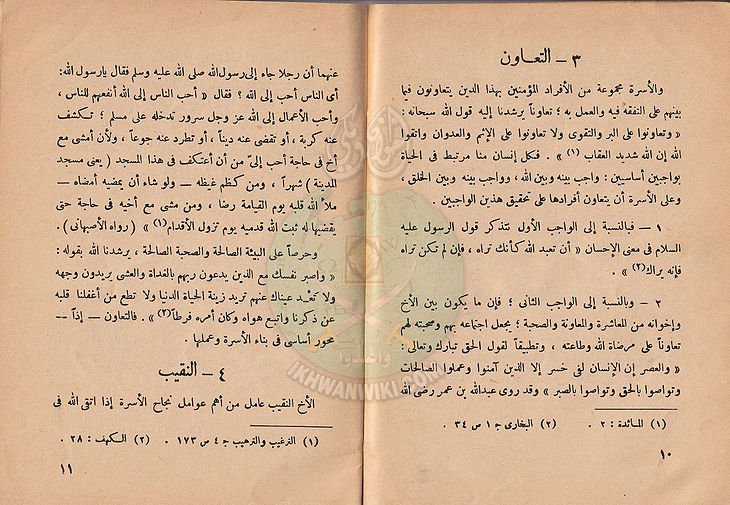 ٣ – التعاون
والأسرة مجموعة من الأفراد المؤمنين بهذا الدين يتعاونون فيما
بينهم على التفقه فيه والعمل به ؛ تعاوناً يرشدنا إليه قول الله سبحانه :
« وتعاونوا على البر والتقوى ولا تعاونوا على الإثم والعدوان واتقوا
الله إن الله شديد العقاب (١) » . فكل إنسان منا مرتبط فى الحياة
بواجبين أساسيين : واجب بينه وبين الله ، وواجب بينه وبين الخلق ،
وعلى الأسرة أن يتعاون أفرادها على تحقيق هذين الواجبين .
١ – فبالنسبة إلى الواجب الأول نتذكر قول الرسول عليه
السلام فى معنى الإحسان « أن تعبد الله كأنك تراه ، فإن لم تكن تراه
فإنه يراك(٢) » .
٢ – وبالنسبة إلى الواجب الثانى ؛ فإن ما يكون بين الأخ
وإخوانه من المعاشرة والمعاونة والصحبة ؛ يجعل اجتماعه بهم وصحبته لهم
تعاوناً على مرضاة الله وطاعته ، وتطبيقاً لقول الحق تبارك وتعالى :
« والعصر إن الإنسان لفى خسر إلا الذين آمنوا وعملوا الصالحات
وتواصوا بالحق وتواصوا بالصبر » وقد روى عبدالله بن عمر رضى الله
(١) المائدة : ٢ . (٢) البخارى ج ١ ص ٣٤ .
١٠
عنهما أن رجلا جاء إلى رسول الله صلى الله عليه وسلم فقال يارسول الله:
أى الناس أحب إلى الله ؟ فقال « أحب الناس إلى الله أنفعهم للناس ،
وأحب الأعمال إلى الله عز وجل سرور تدخله على مسلم ؛ تكشف
عنه كربة ، أو تقضى عنه ديناً ، أو تطرد عنه جوعاً ، ولأن أمشى مع
أخ فى حاجة أحب إلىّ من أن أعتكف فى هذا المسجد ( يعنى مسجد
المدينة ) شهراً ، ومن كظم غيظه – ولو شاء أن يمضيه أمضاه –
ملأ الله قلبه يوم القيامة رضا ، ومن مشى مع أخيه فى حاجة حتى
يقضيها له ثبت الله قدميه يوم تزول الأقدام(١) » ( رواه الأصبهانى ) .
وحرصاً على البيئة الصالحة والصحبة الصالحة ، يرشدنا الله بقوله :
« واصبر نفسك مع الذين يدعون ربهم بالغداة والعشى يريدون وجهه
ولا تعْد عيناك عنهم تريد زينة الحياة الدنيا ولا تطع من أغفلنا قلبه
عن ذكرنا واتبع هواه وكان أمره فرطاً(٢) » . فالتعاون – إذاً –
محور أساسى فى بناء الأسرة وعملها .
٤ – النقيب
الأخ النقيب عامل من أهم عوامل نجاح الأسرة إذا اتقى الله فى
(١) الترغيب والترهيب ج ٤ ص ١٧٣ . (٢) الكهف : ٢٨ .
١١
وأعدوا
IKHWANWIKI.COM